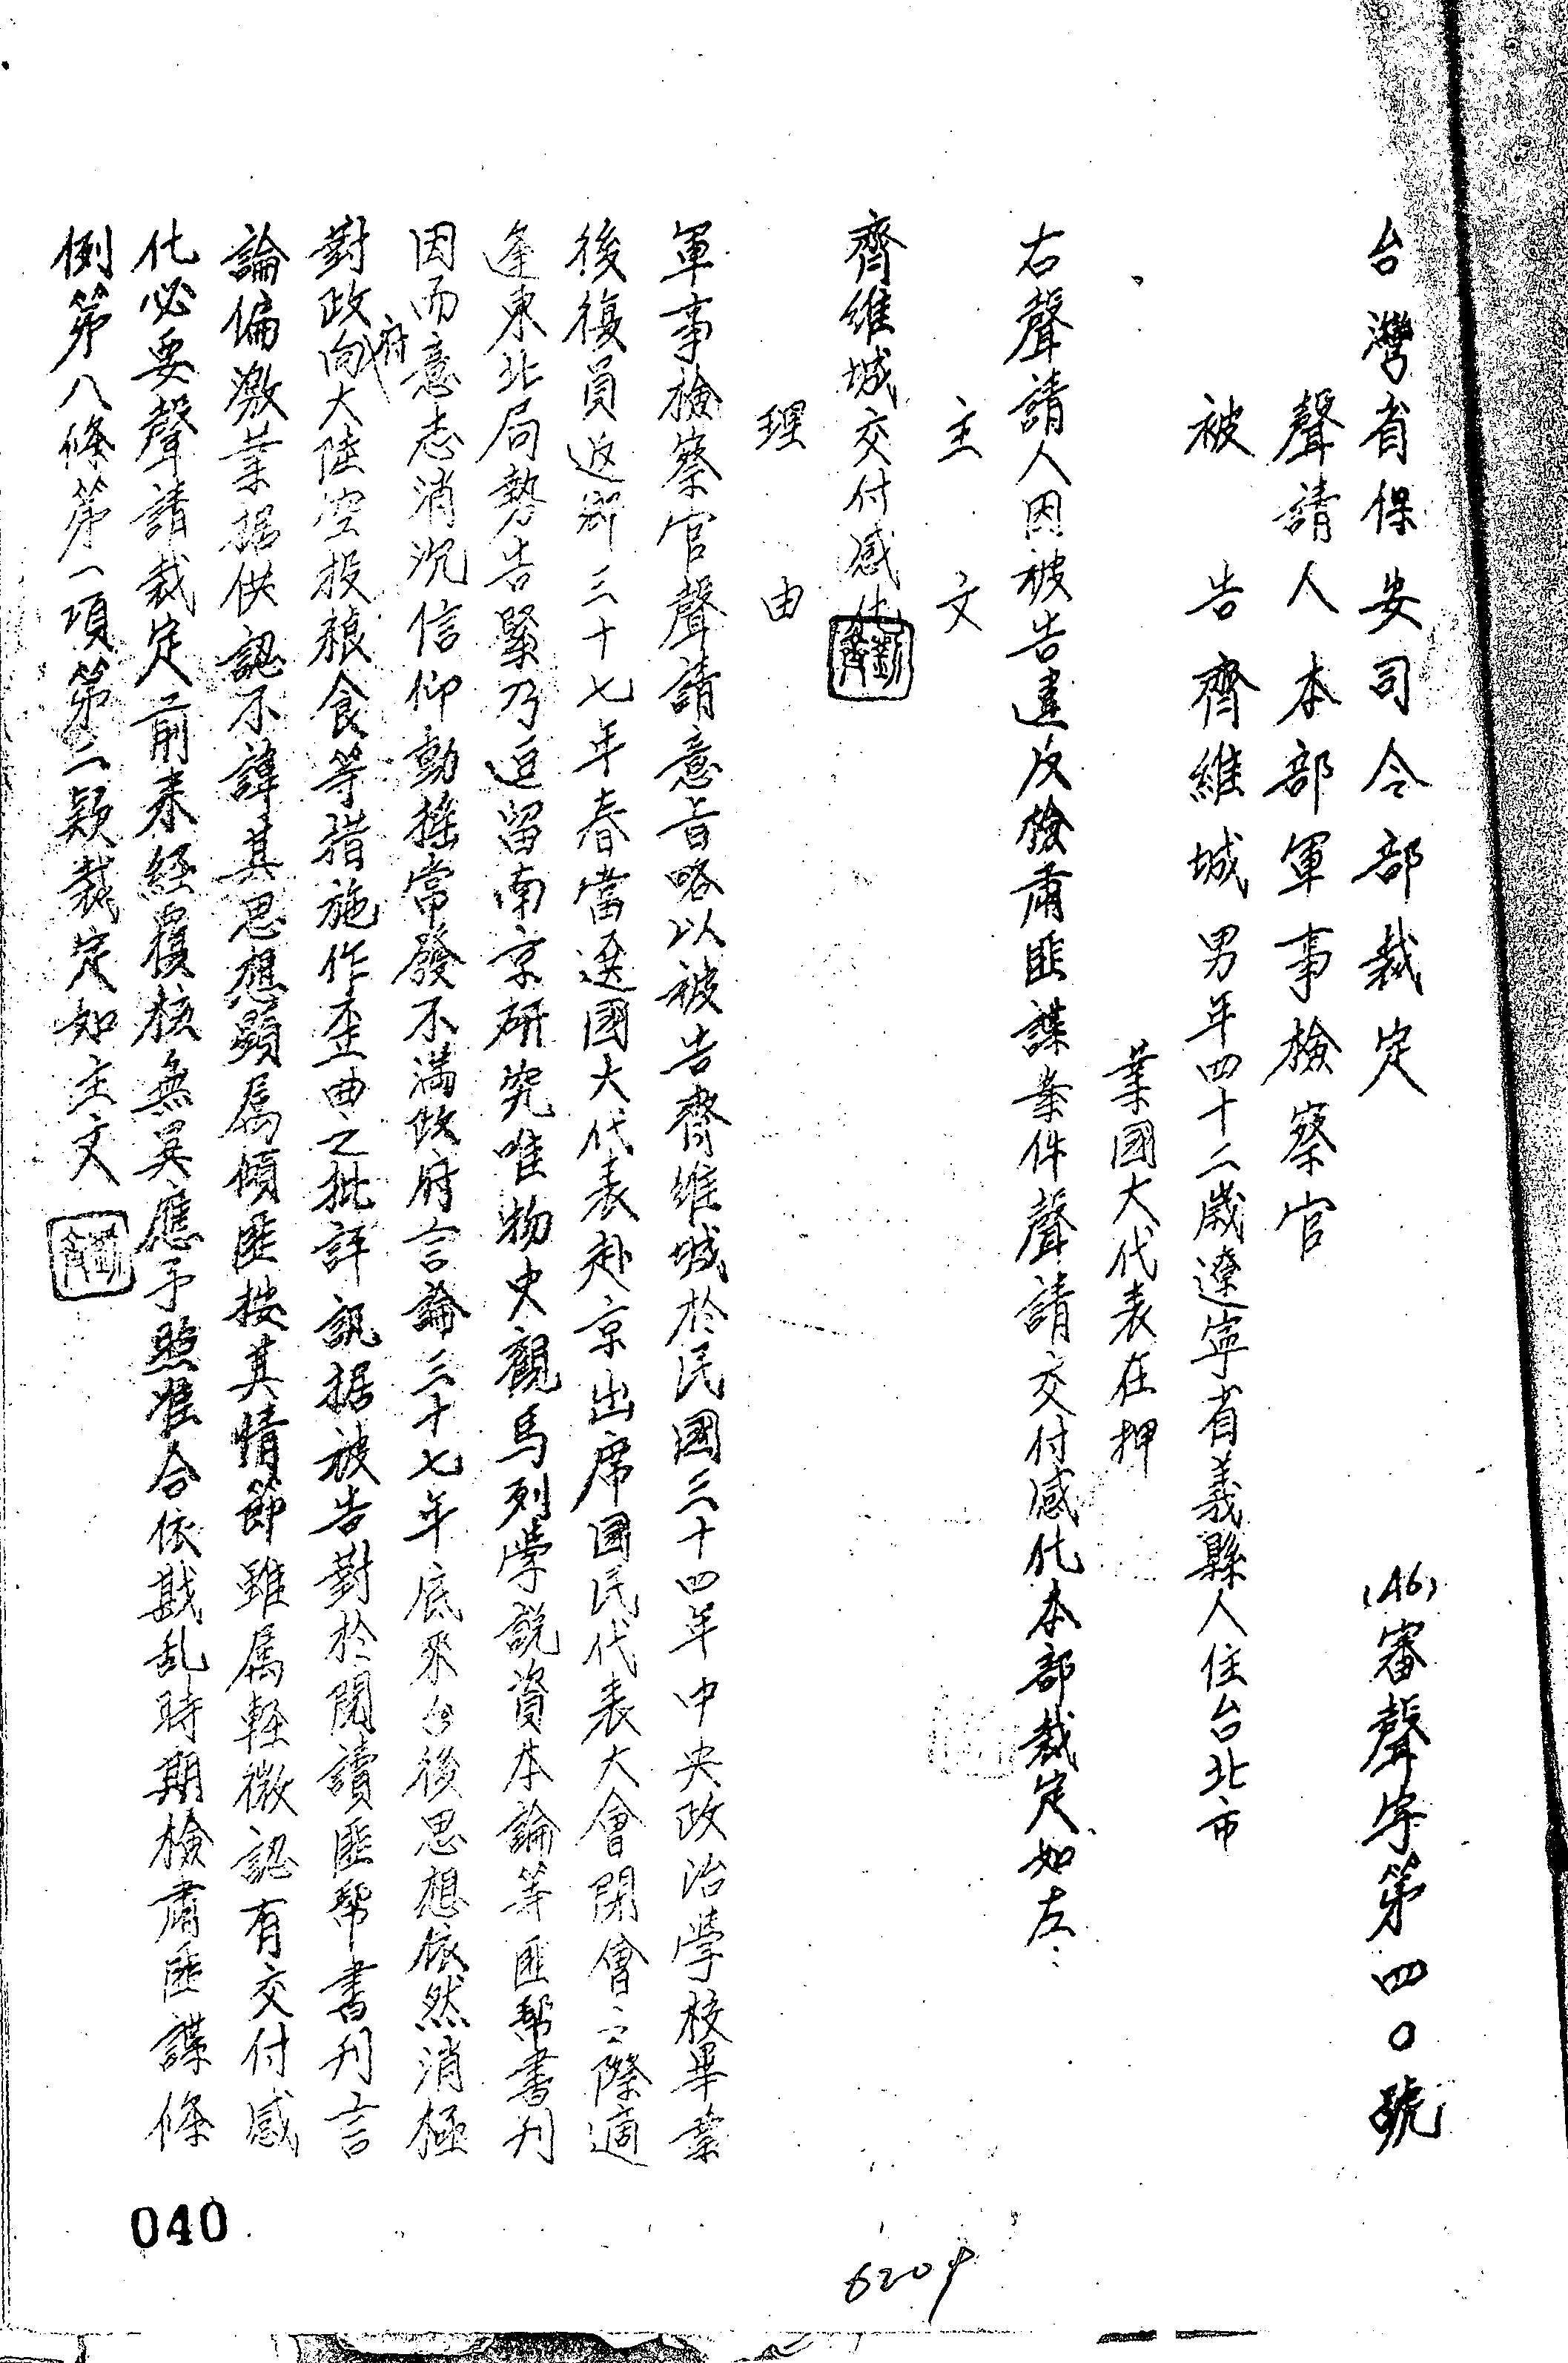 台灣省保安司令部裁定
(46)審聲字第四〇號
聲請人本部軍事檢察官
被告齊維城男年四十二歲遼寧省義縣人住台北市
業國大代表在押
右聲請人因被告違反檢肅匪諜案件聲請交付感化本部裁定如左:
主文
齊維城交付感化
理由
軍事檢察官聲請意旨略以被告齊維城於民國三十四年中央政治學校畢業
後復員返鄉三十七年春當選國大代表赴京出席國民代表大會閉會之際適
逢東北局勢告緊乃逗留南京研究唯物史觀馬列學說資本論等匪幫書刊
因而意志消沉信仰動搖常發不滿政府言論三十七年底來台後思想依然消極
對政府向大陸空投粮食等措施作歪曲之批評訊据被告對於閱讀匪幫書刊言
論偏激業据供認不諱其思想顯屬傾匪按其情節雖屬軽微認有交付感
化必要聲請裁定前來経覆核無異應予照准合依戡乱時期檢肅匪諜條
例第八條第一項第二款裁定如主文
040
6204